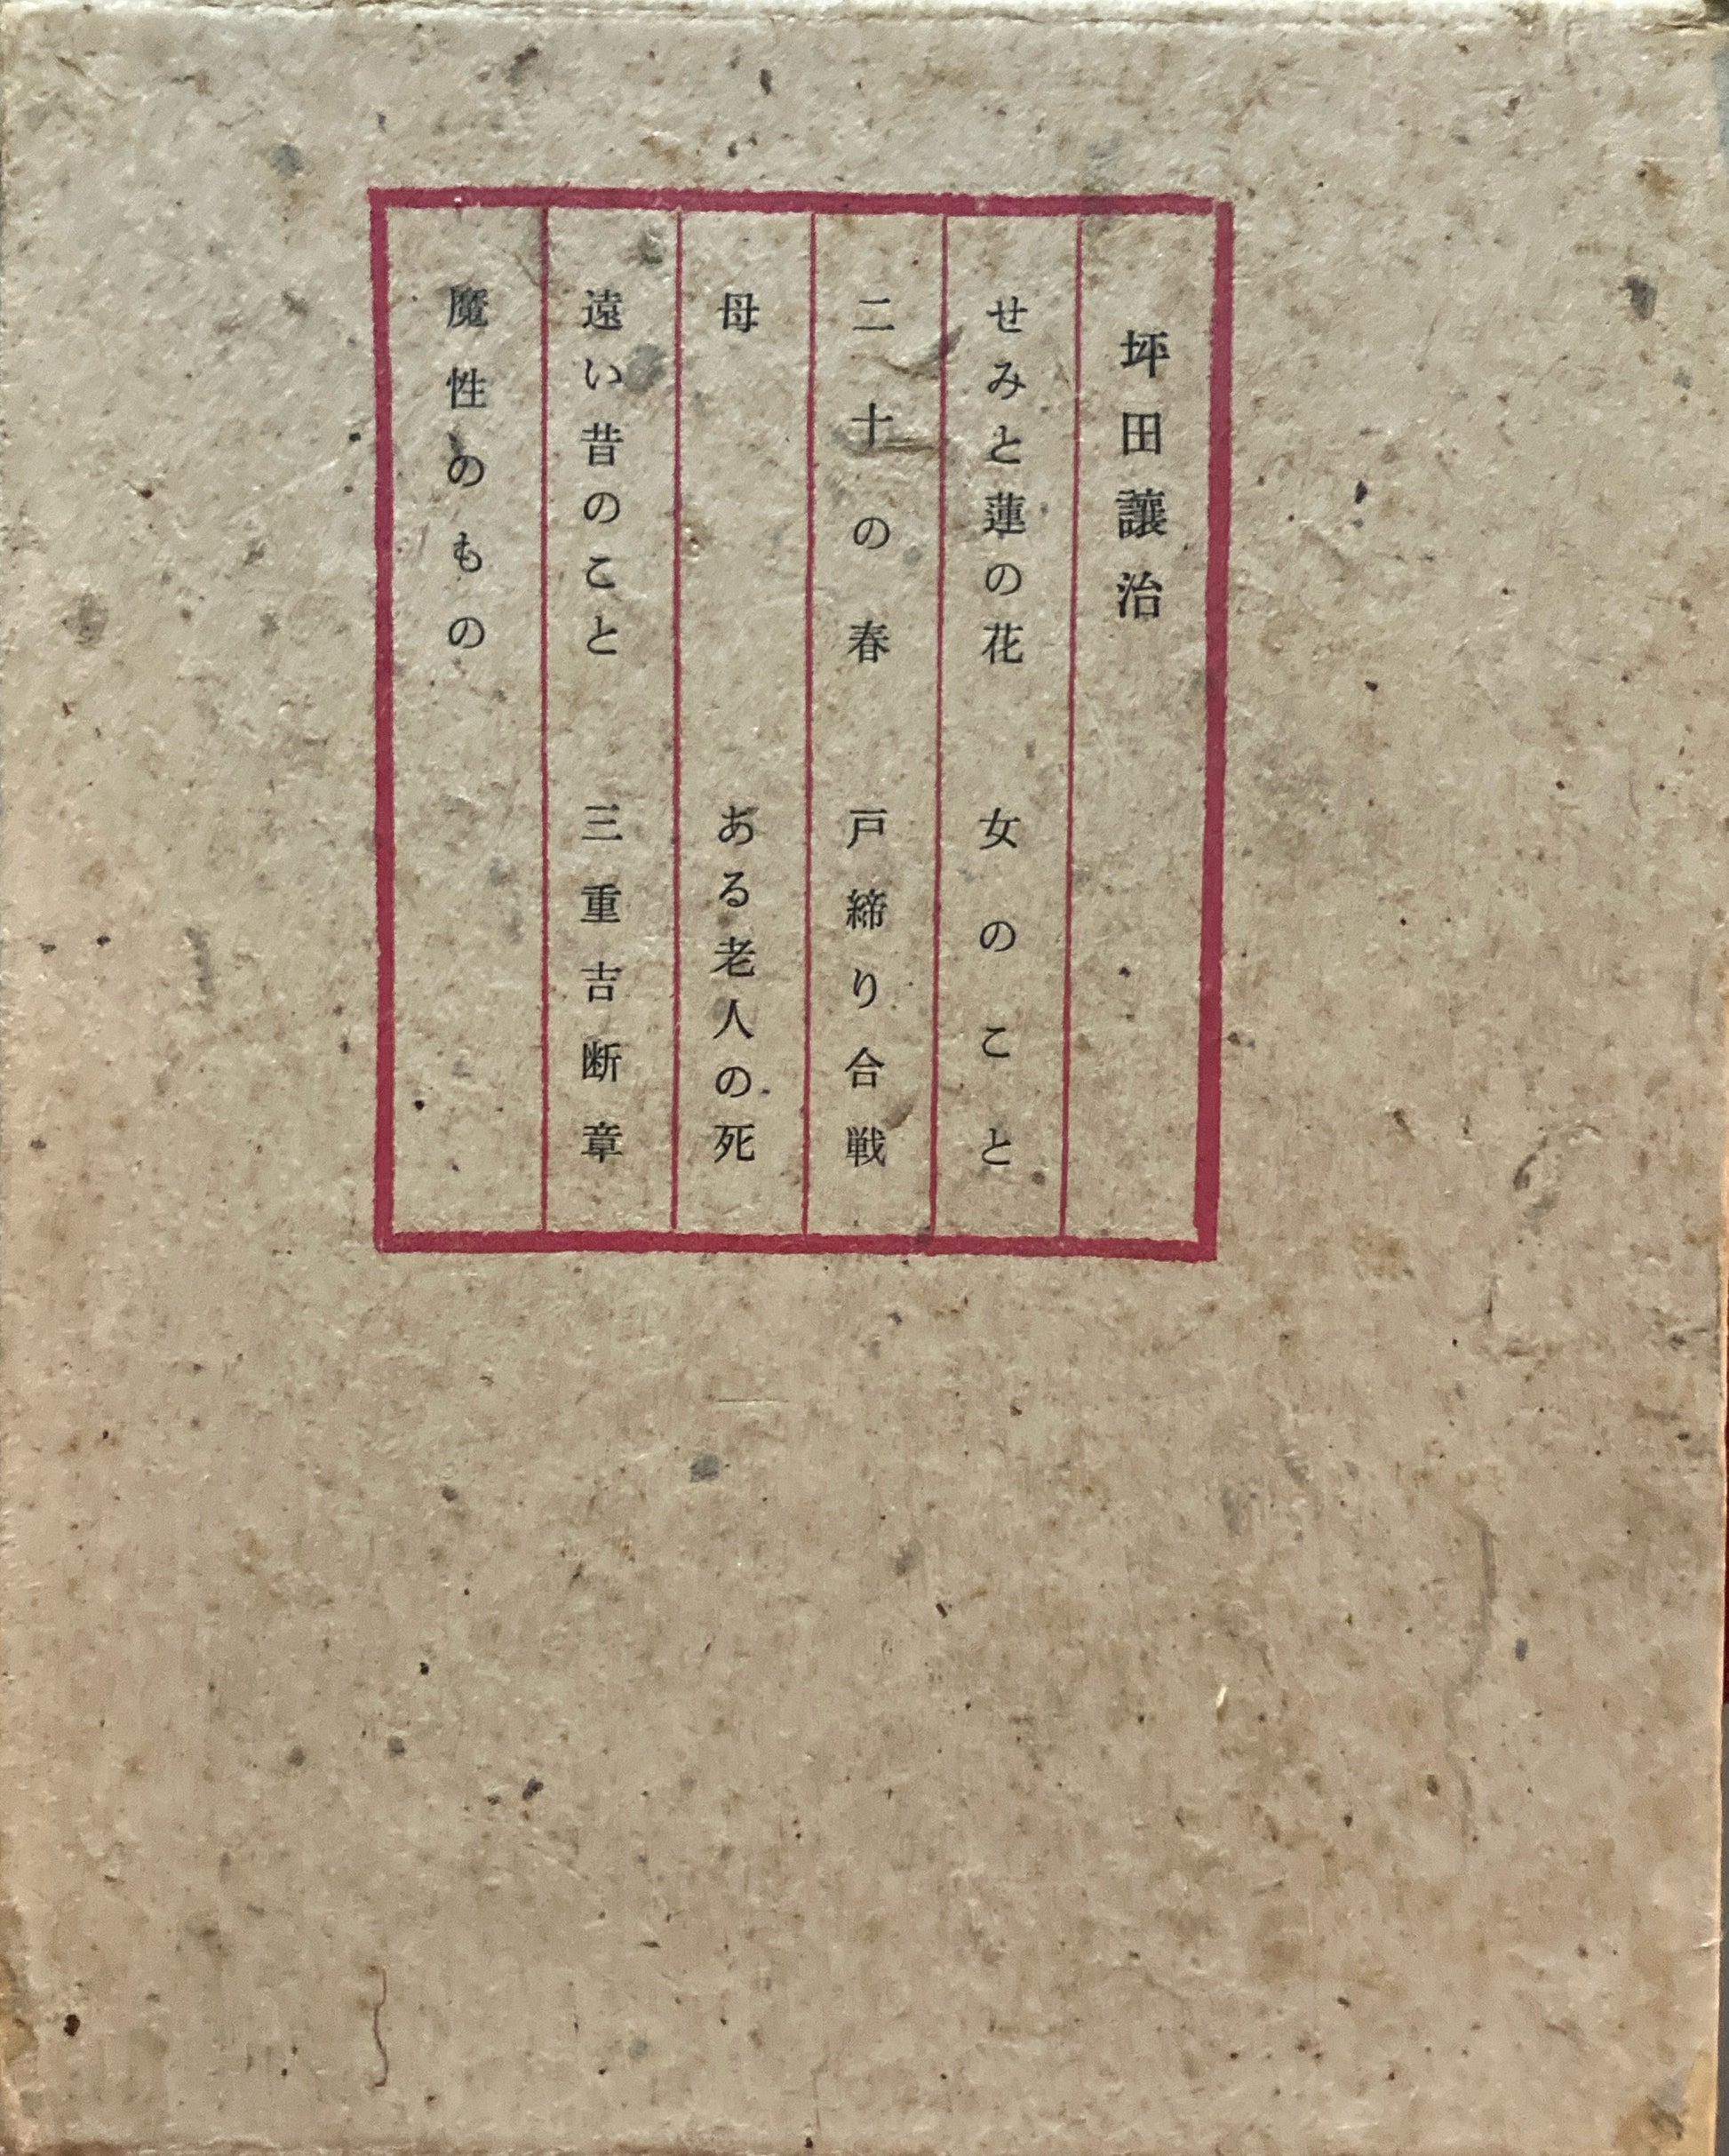 坪田讓治
せみと蓮の花　女のこと
二十の春　戸締り合戦
母　ある老人の死
遠い昔のこと　三重吉断章
魔性のもの